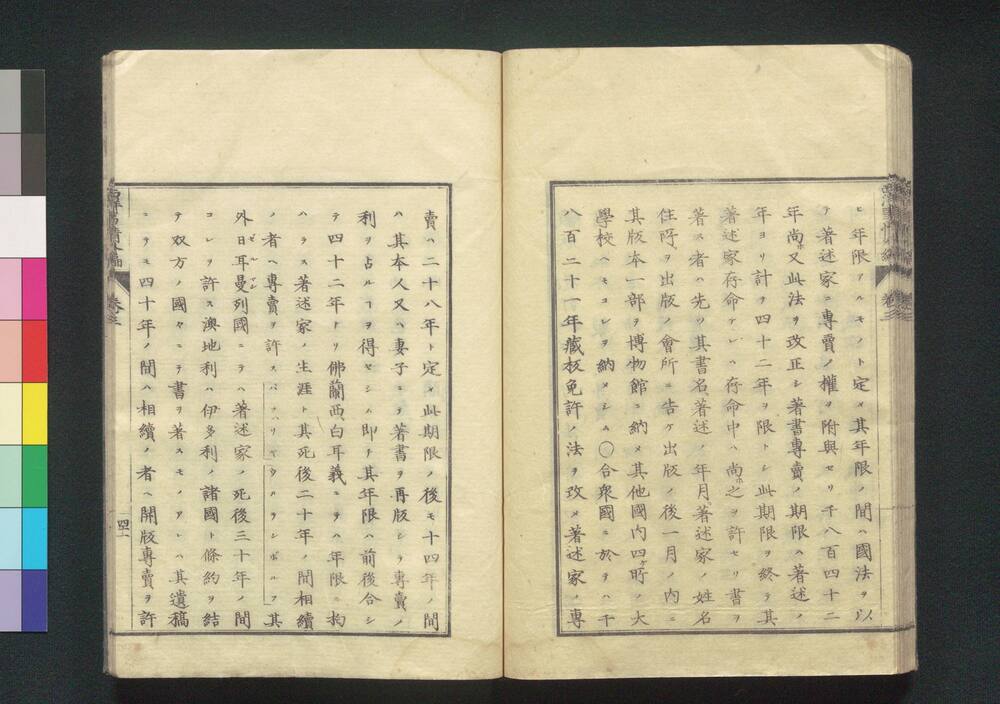 ヒ年限アルモノト定メ其年限ノ間ハ國法ヲ以
テ著述家ニ專賣ノ權ヲ附與セリ千八百四十二
年尚ホ又此法ヲ改正シ著書專賣ノ期限ハ著述ノ
年ヨリ計ヲ四十二年ヲ限トシ此期限ヲ終テ其
著述家存命ナレハ存命中ハ尚ホ之ヲ許セリ書ヲ
著ス者ハ先ツ其書名著述ノ年月著述家ノ姓名
住所ヲ出版ノ會所ニ告ケ出版ノ後一月ノ内ニ
其版本一部ヲ博物館ニ納メ其他國内四ケ所ノ大
學校ヘモコレヲ納メシム〇合衆國ニ於テハ千
八百三十一年藏板免許ノ法ヲ改メ著述家ノ專
賣ハ二十八年ト定メ此期限ノ後モ十四年ノ間
ハ其本人又ハ妻子ニテ著書ヲ再版シテ專賣ノ
利ヲ占ルヿヲ得セシム即チ其年限ハ前後合シ
テ四十二年ナリ佛蘭西白耳義ニテハ年限ニ拘
ハラス著述家ノ生涯ト其死後二十年ノ間相續
ノ者ヘ專賣ヲ許ス 其
外日耳曼列國ニテハ著述家ノ死後三十年ノ間
コレヲ許ス澳地利ハ伊多利ノ諸國ト條約ヲ結
テ双方ノ國々ニテ書ヲ著スモノアレハ其遺稿
ニテモ四十年ノ間ハ相續ノ者ヘ開版專賣ヲ許
卷之三